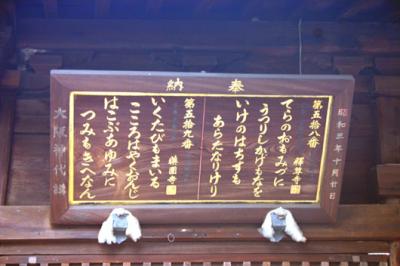 奉納
昭和三年十月廿日
第五拾八番
釋尊寺
てらの和もみづに
うつりしかげもなを
いけのはちすも
あらたなりけり
第五拾九番
いくたびもまいる
こころはやくおんじ
はこぶあゆみに
つみもきへなん
大阪神代講